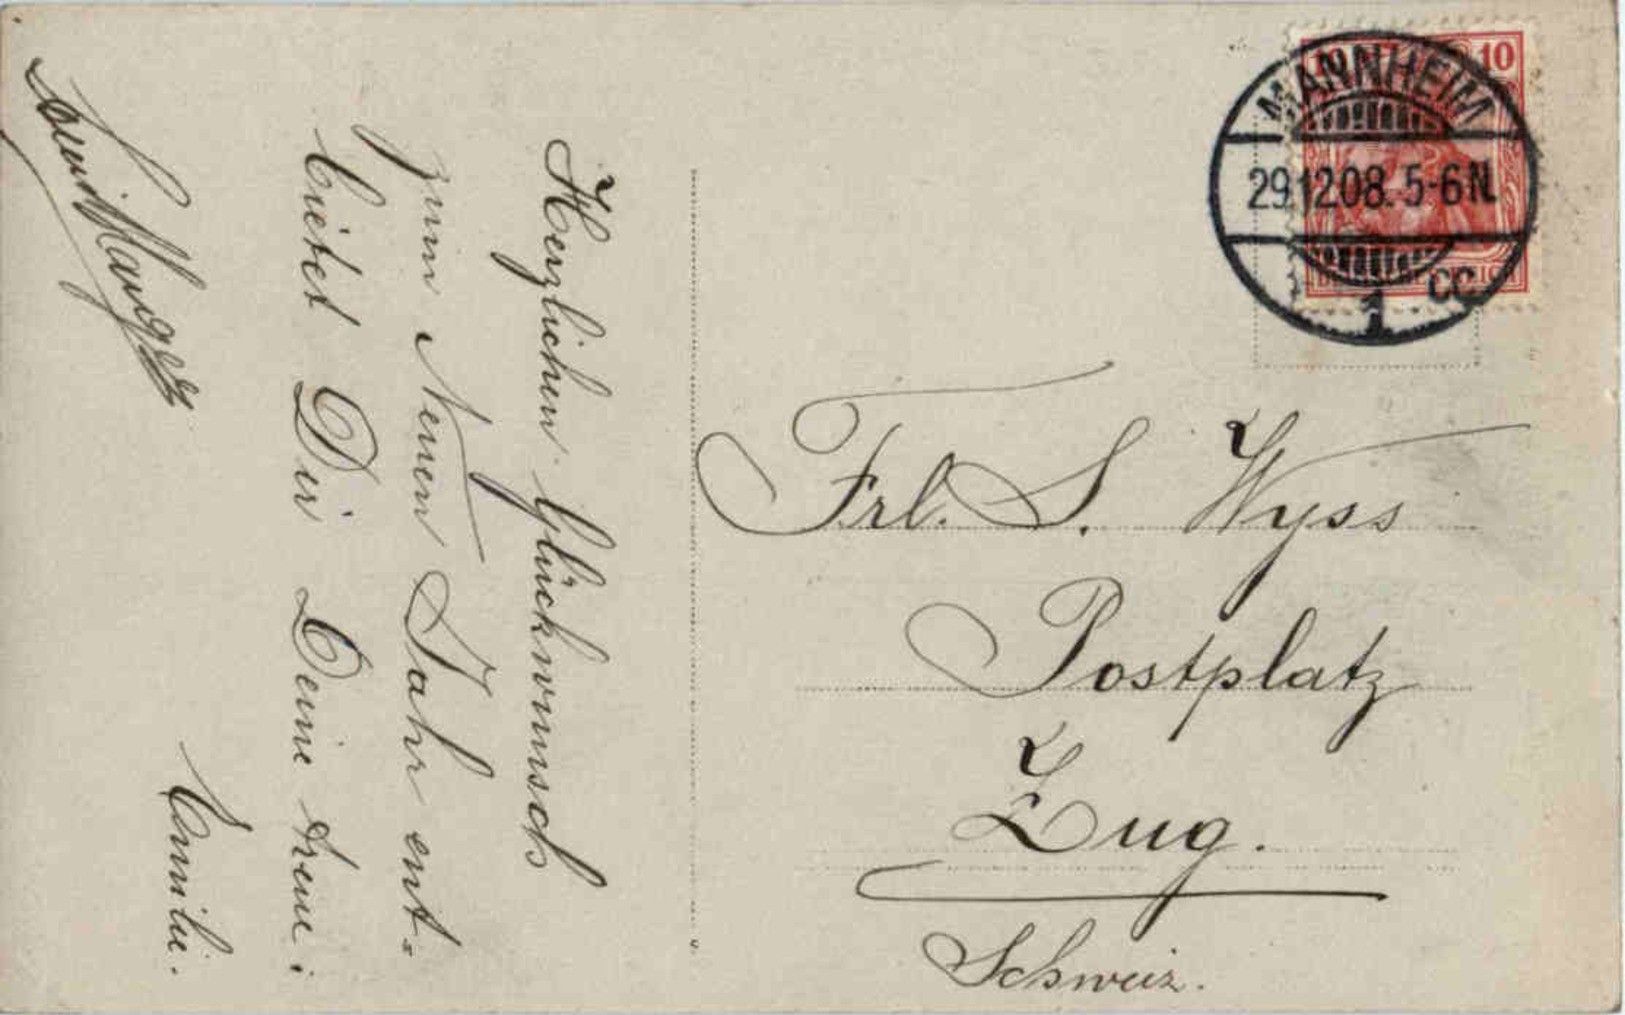 Herzlichen Glückwunsch
zum Neuen Jahr ent-
bietet Dir Deine treue:
Emilie.
10
MANNHEIM
29.12.08. 5-6 N.
1 CC
Frl. S. Wyss
Postplatz
Zug.
Schweiz.